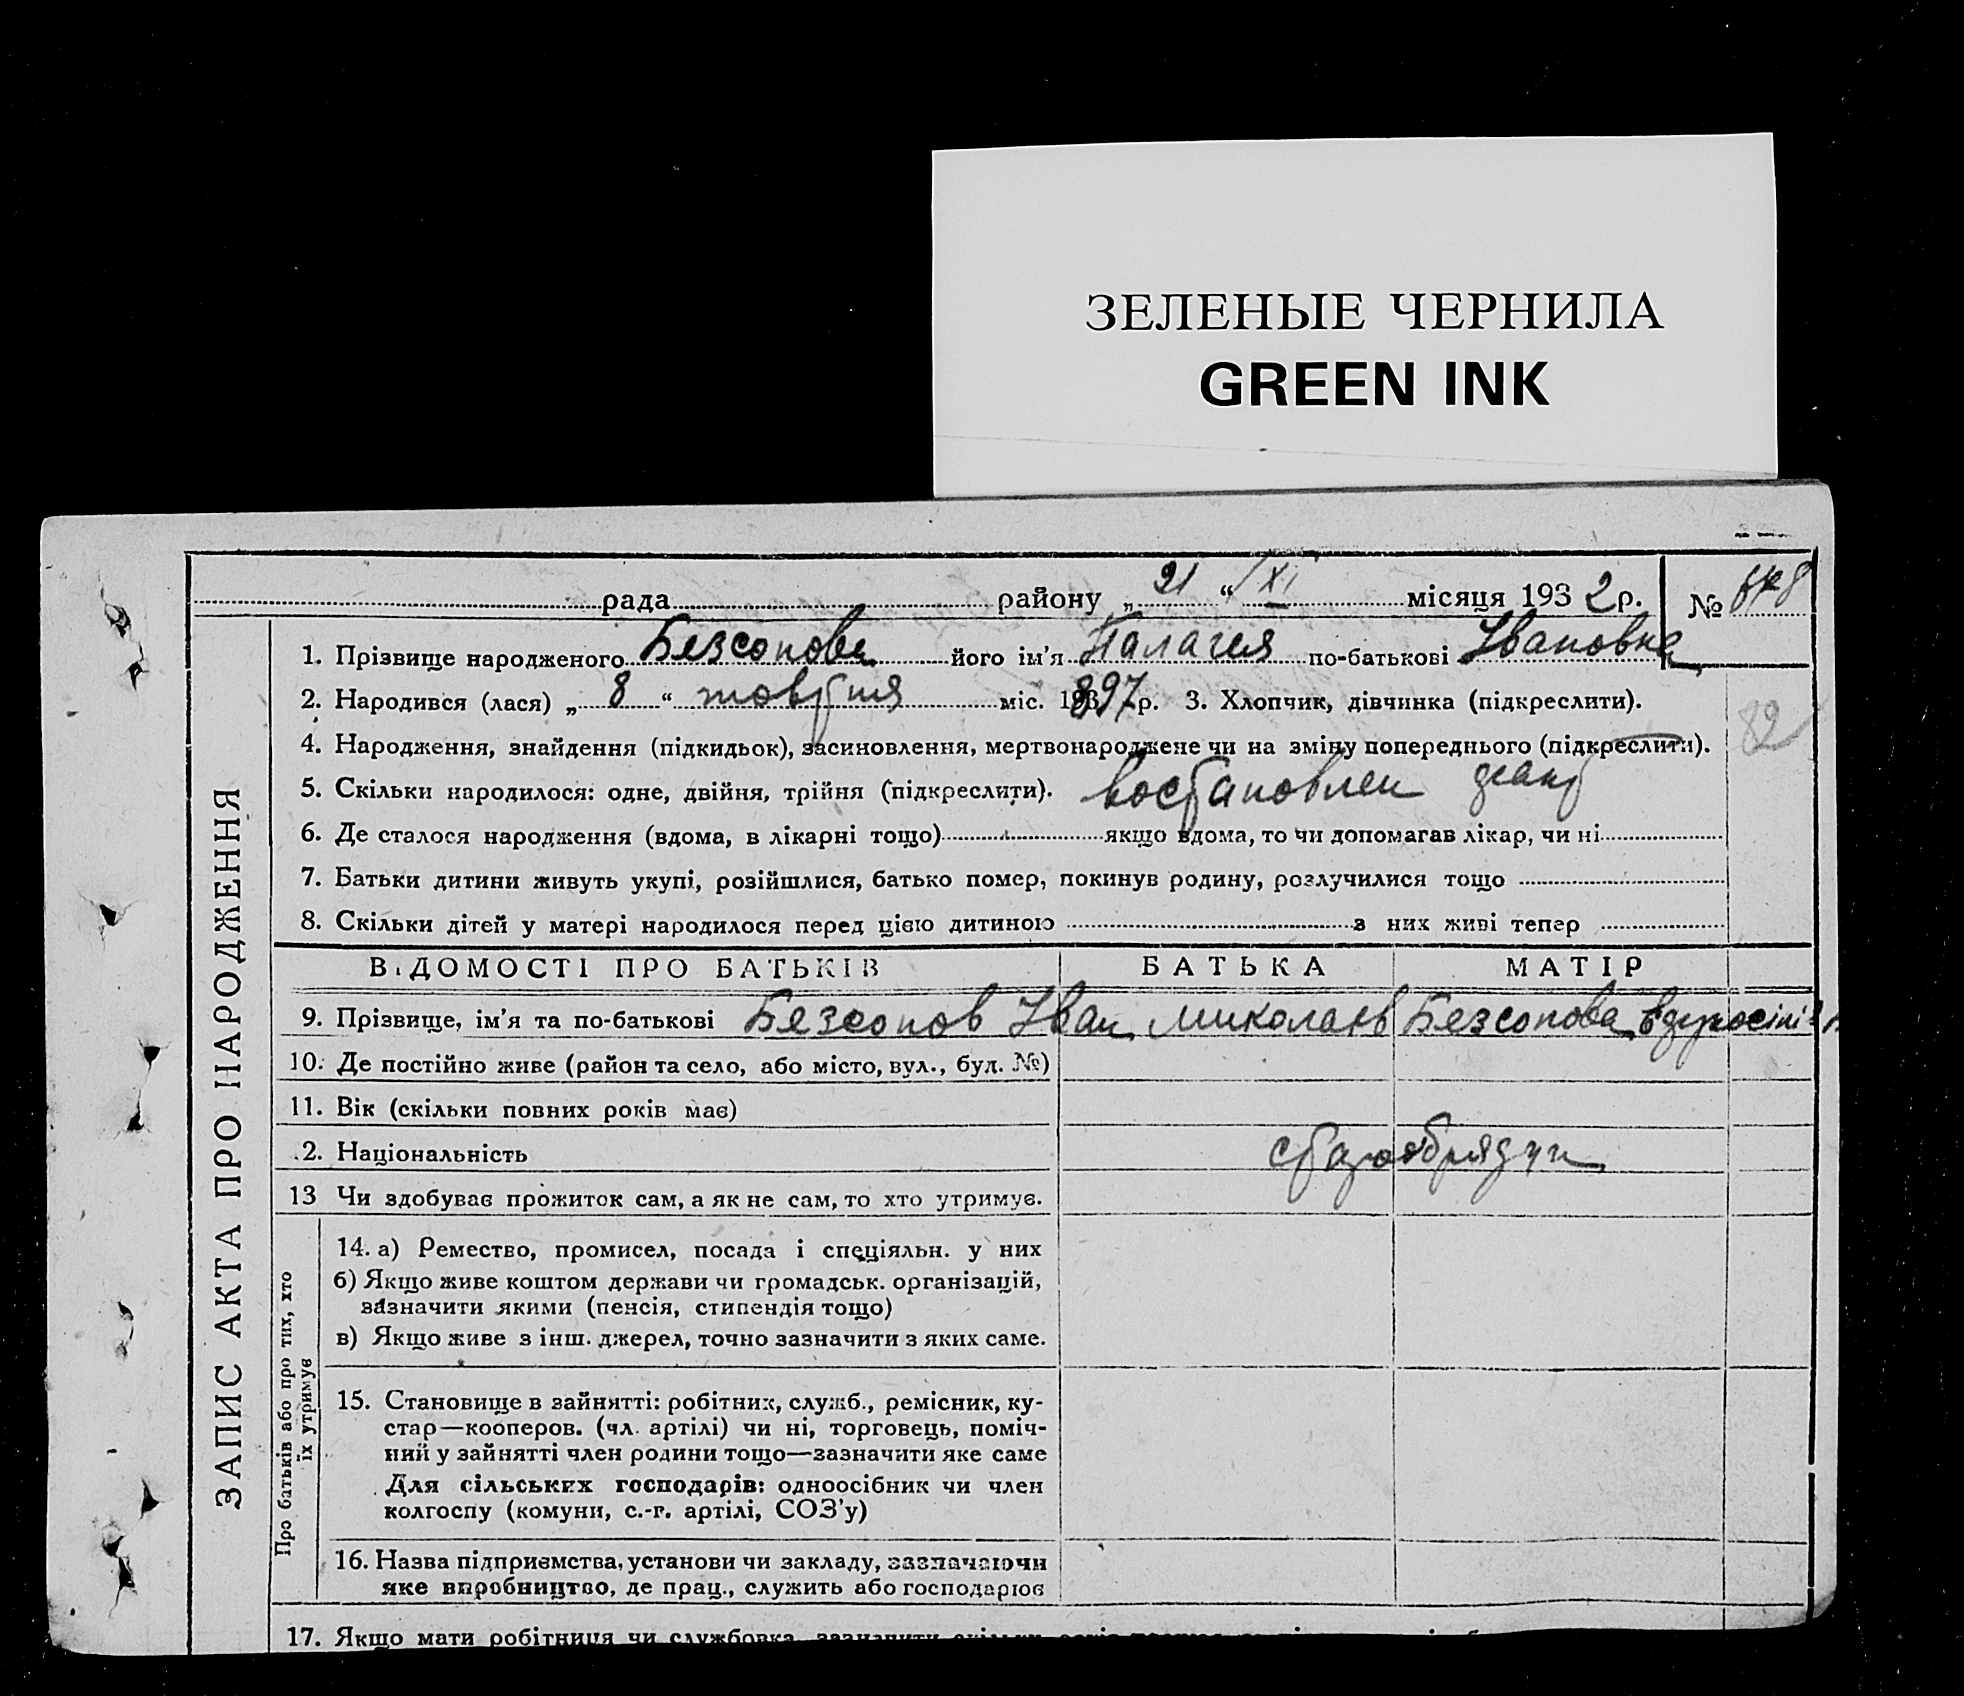 ЗЕЛЕНЫЕ ЧЕРНИЛА
GREEN INK
рада района „ 21 “ XI місяця 1932 р. №
1. Прізвище народженого Безсонова його ім'я Палагия по-батькові Ивановна
2. Народився (лася) „ 8 “ товтня міс. 1897 р. 3. Хлопчик, дівчинка (підкреслити).
82
4. Народження, знайдення (підкидьок), засиновлення, мертвонароджене чи на зміну попереднього (підкреслити).
5. Скільки народилося: одне, двійня, трійня (підкреслити). востановлен
6. Де сталося народження (вдома, в лікарні тощо) якщо вдома, то чи допомагав лікар, чи ні
7. Батьки дитини живуть укупі, розійшлися, батько помер, покинув родину, розлучилися тощо
8. Скільки дітей у матері народилося перед цією дитиною з них живі тепер
ВІДОМОСТІ ПРО БАТЬКІВ БАТЬКА МАТІР
9. Прізвище, ім'я та по-батькові Безсонов Иван Миколаєв Безсонова
10. Де постійно живе (район та село, або місто, вул., буд. №)
11. Вік (скільки повних років має)
.2. Національність старообрядчи
13 Чи здобуває прожиток сам, а як не сам, то хто утримує.
14. а) Ремество, промисел, посада і спеціяльн. у них
б) Якщо живе коштом держави чи громадськ. організацій,
зазначити якими (пенсія, стипендія тощо)
в) Якщо живе з інш. джерел, точно зазначити з яких саме.
15. Становище в зайнятті: робітник, служб., ремісник, ку-
стар—кооперов. (чл. артілі) чи ні, торговець, поміч-
ний у зайнятті член родини тощо—зазначити яке саме
Для сільських господарів: одноосібник чи член
колгоспу (комуни, с.-г. артілі, СОЗ'у)
16. Назва підприємства, установи чи закладу, зазначаючи
яке виробництво, де прац., служить або господарює
17. Якщо мати робітниця чи службовка, зазначити скільки
ЗАПИС АКТА ПРО НАРОДЖЕННЯ
Про батьків або про тих, хто
їх утримує